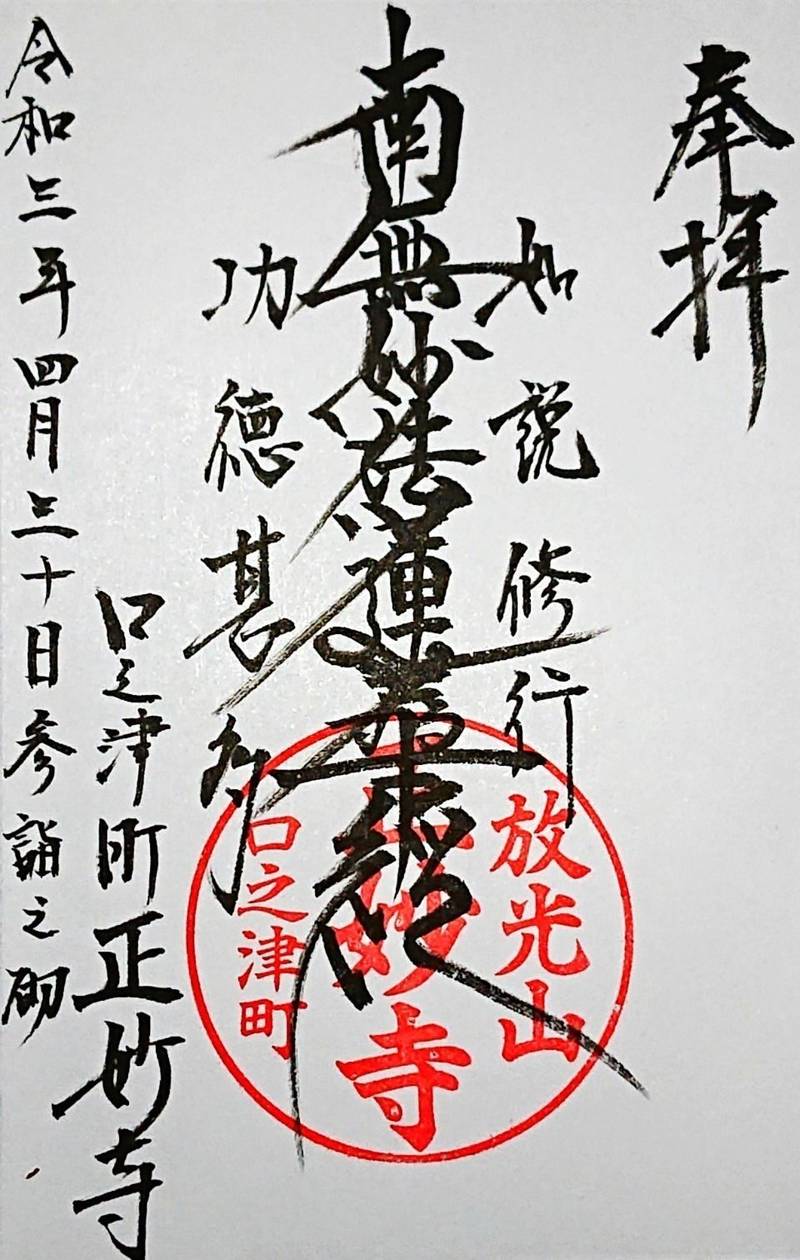 奉拝
如説修行
南無妙法蓮華経
功徳甚多
放光山
正妙寺
口之津町
口之津町正妙寺
令和三年四月三十日参詣之砌